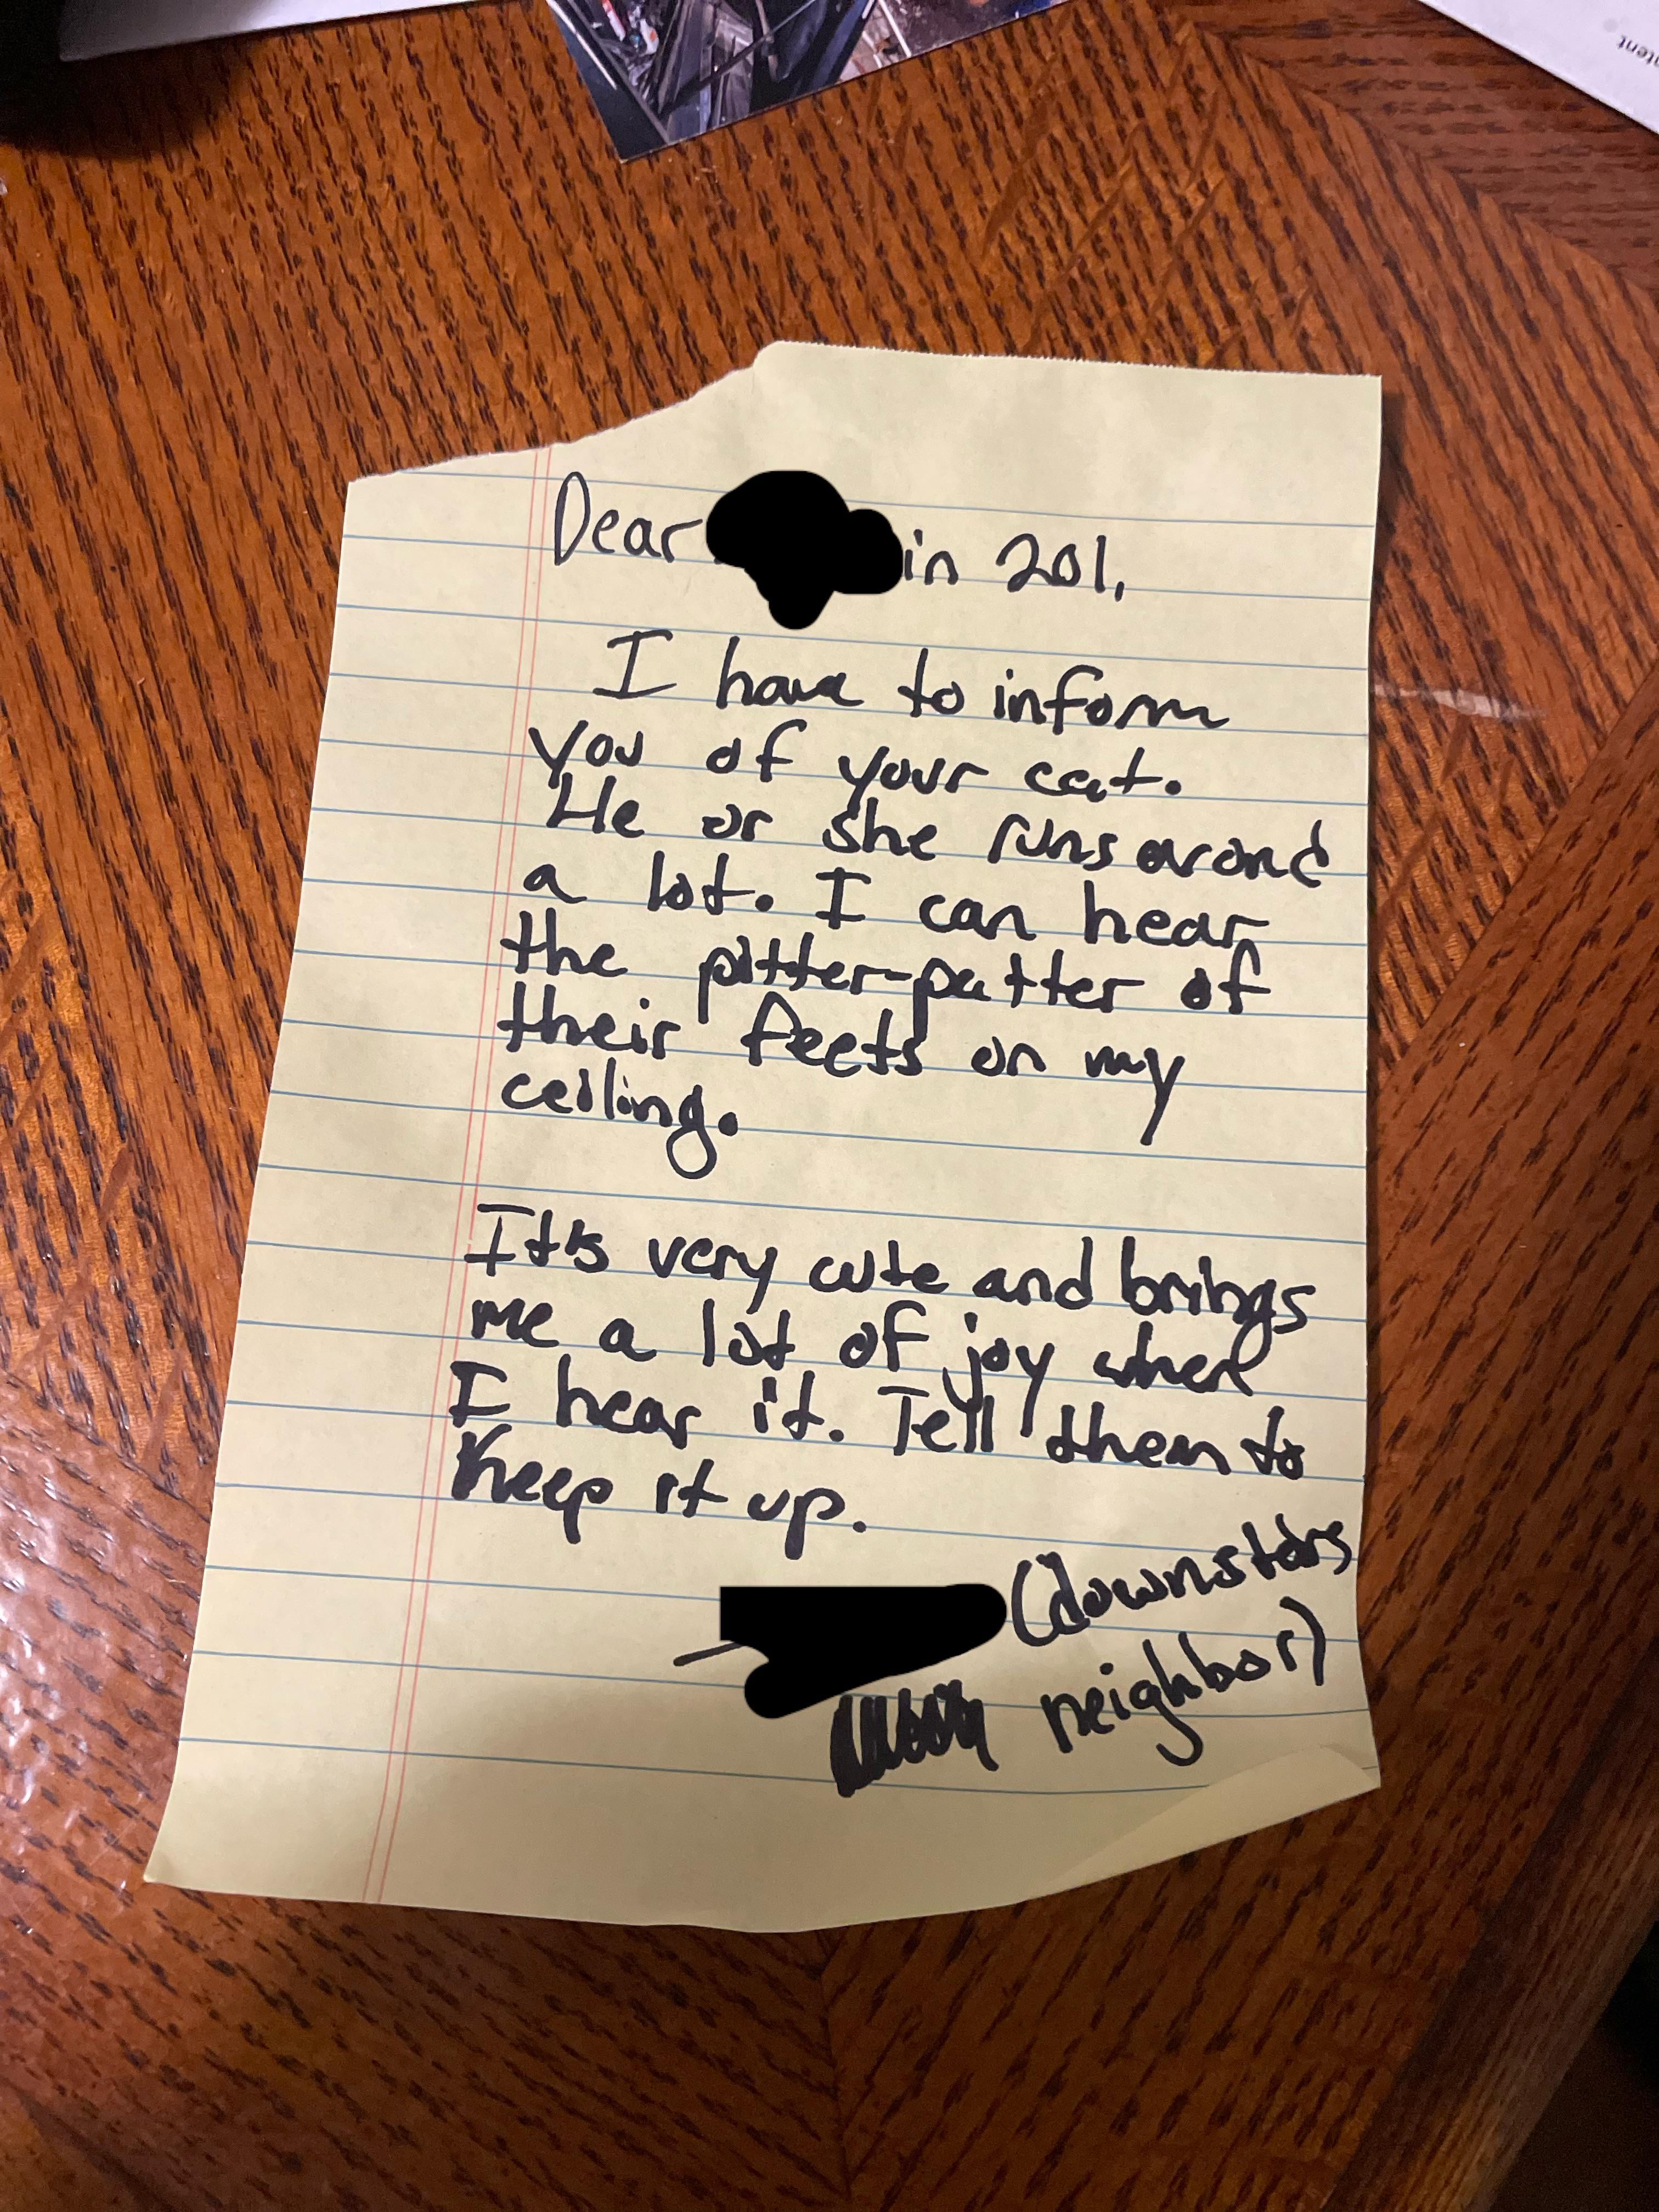 ntent
Dear in 201,
I have to inform
you of your cat.
He or she runs arond
a lot. I can hear
the pitter-patter of
their feets on my
ceiling.
It's very cute and brings
me a lot of joy when
I hear it. Tell them to
keep it up.
(downstairs
neighbor)